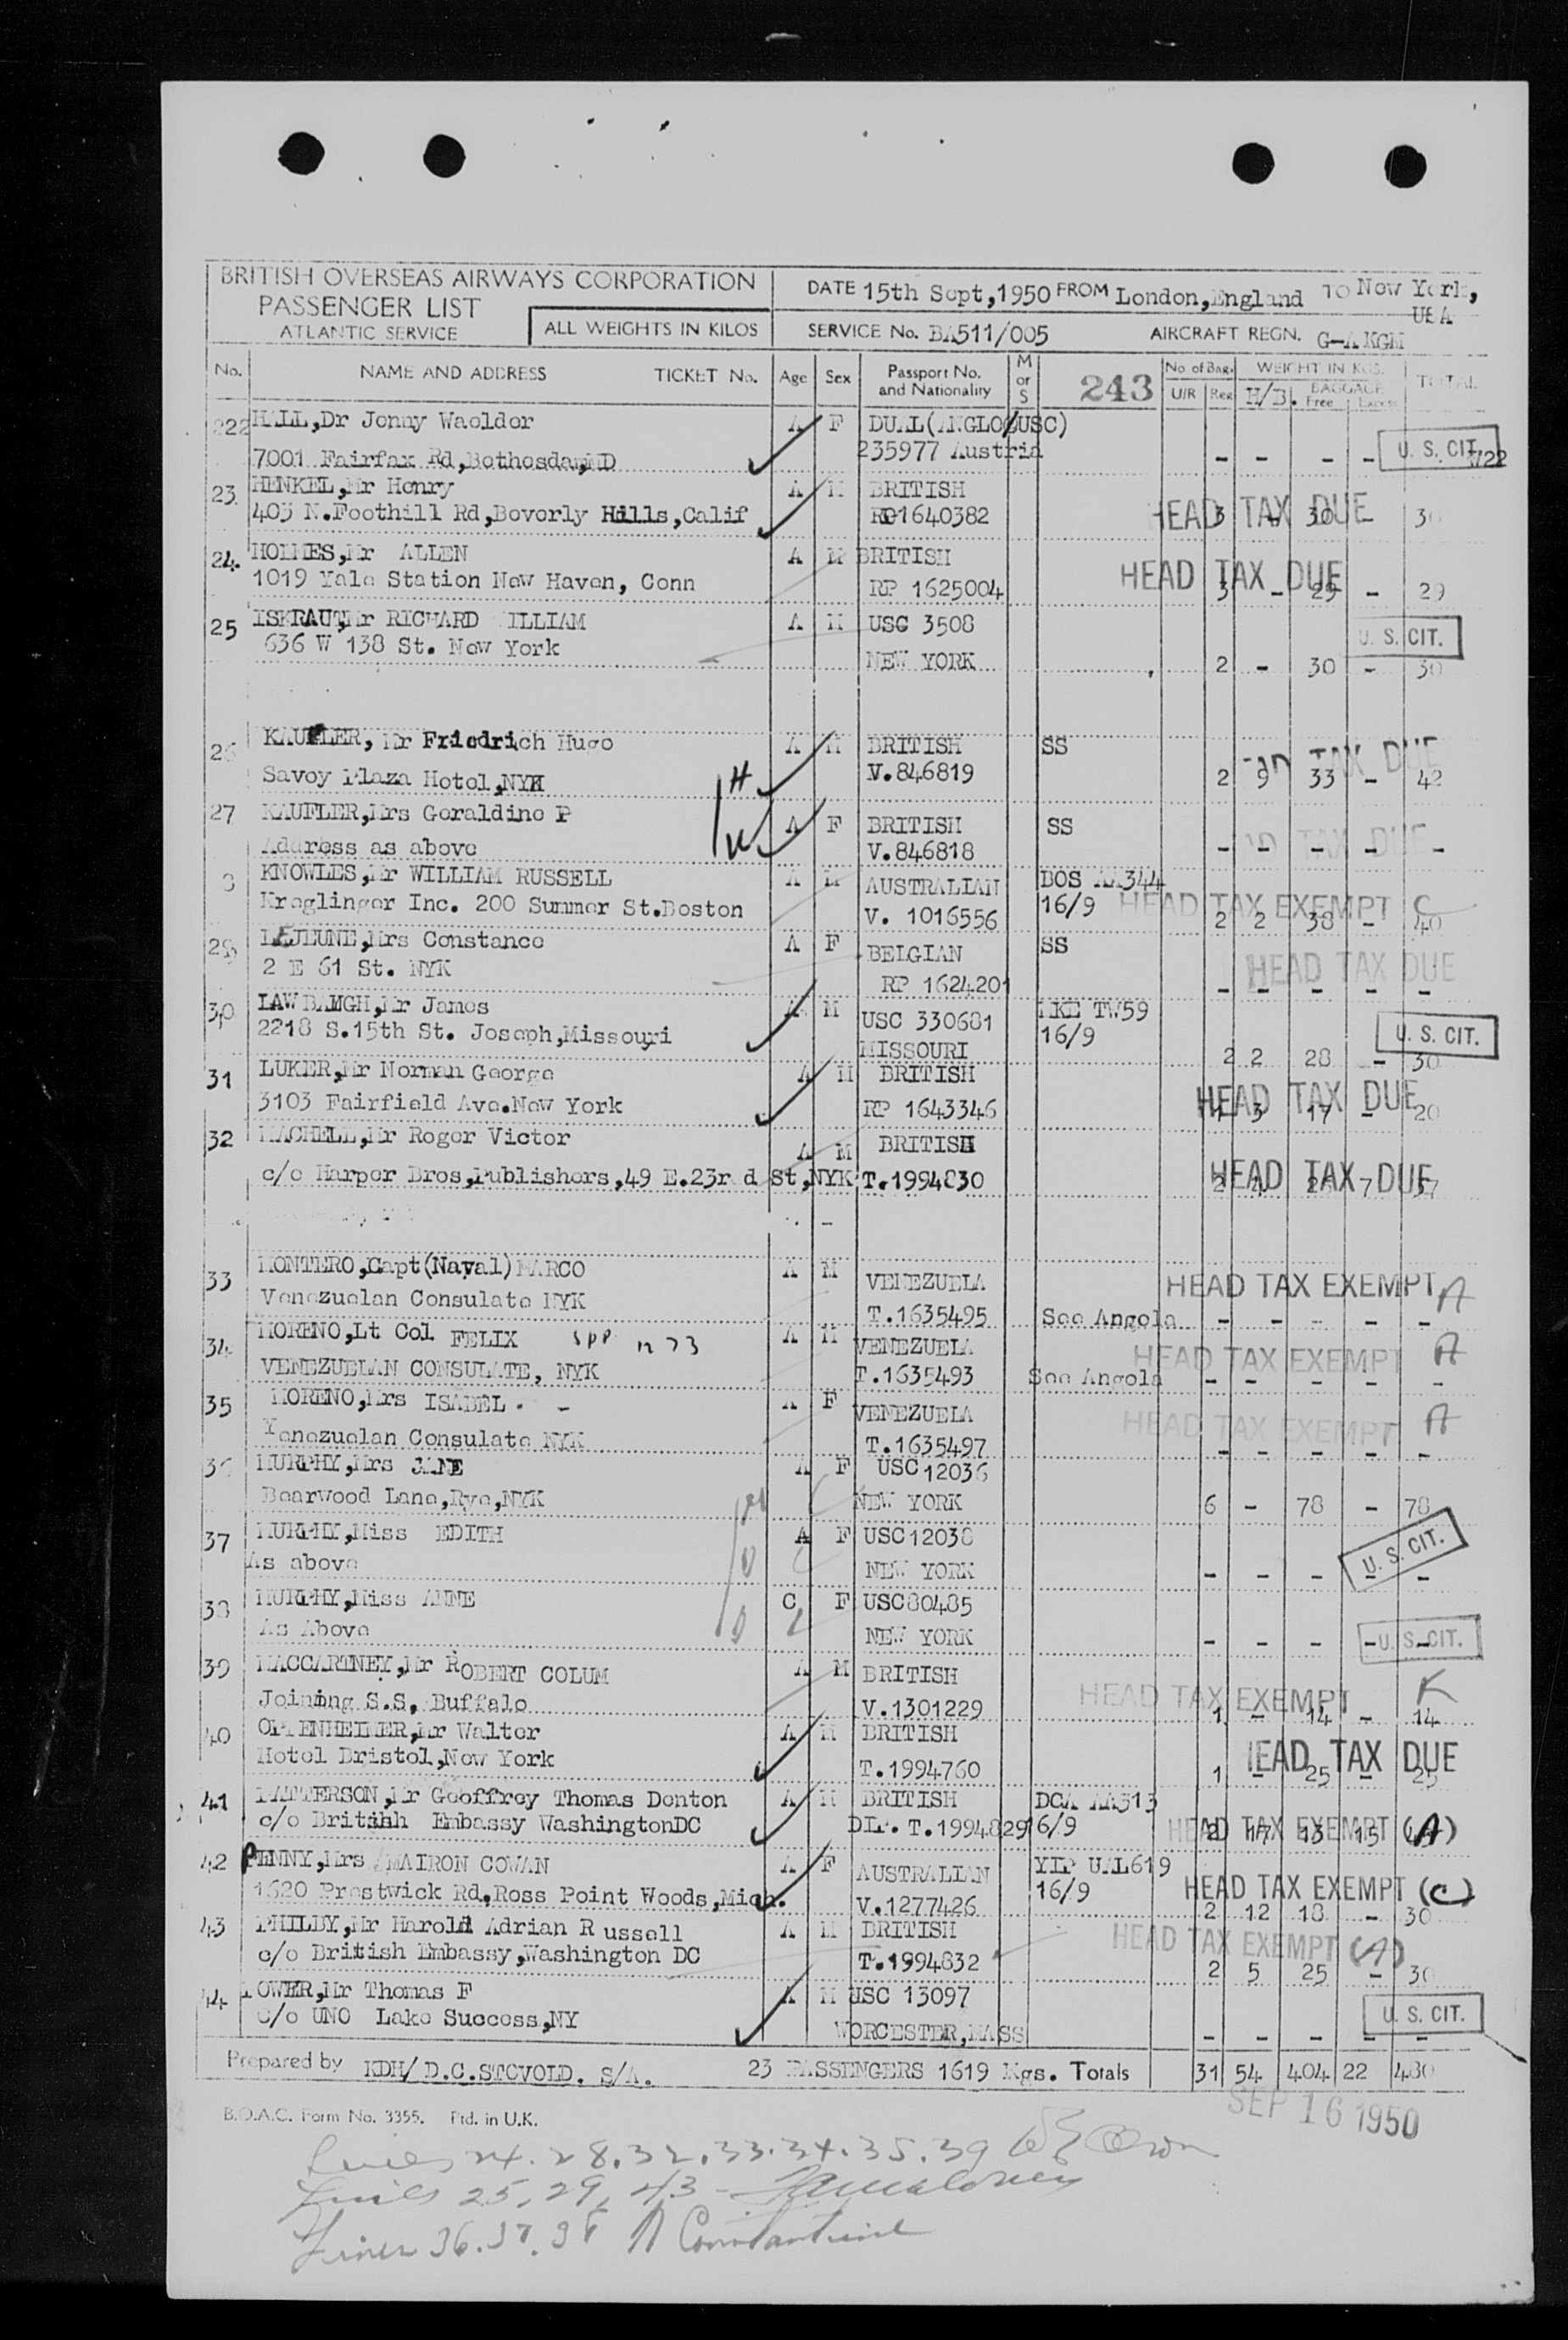 BRITISH OVERSEAS AIRWAYS CORPORATION
PASSENGER LIST
ATLANTIC SERVICE
ALL WEIGHTS IN KILOS
DATE 15th Sept,1950 FROM London,England TO New York,
USA
SERVICE No. BA511/005 AIRCRAFT REGN. G-AKGM
No. NAME AND ADDRESS TICKET No. Age Sex Passport No. and Nationality M or S 243 No of Bag. U/R Reg WEIGHT IN KGS. H/B. BAGGAGE Free Excess TOTAL
222 HALL,Dr Jenny Waelder A F DUAL(ANGLO/USC)
7001 Fairfax Rd,Bethesda,MD 235977 Austria - - - - U. S. CIT.
23 HENKEL,Mr Henry A M BRITISH
403 N.Foothill Rd,Beverly Hills,Calif 1640382 HEAD TAX DUE 3 - 30 - 30
24. HOLMES,Mr ALLEN A M BRITISH
1019 Yale Station New Haven, Conn RP 1625004 HEAD TAX DUE 3 - 29 - 29
25 ISKRAUT,Mr RICHARD ILLIAM A M USC 3508 U. S. CIT.
636 W 138 St. New York NEW YORK 2 - 30 - 30
26 KAUFLER, Mr Friedrich Hugo A M BRITISH SS HEAD TAX DUE
Savoy Plaza Hotel,NYK H V.846819 2 9 33 - 42
27 KAUFLER,Mrs Geraldine P A F BRITISH SS
Address as above W V.846818 AD TAX DUE - - - - -
8 KNOWLES,Mr WILLIAM RUSSELL A M AUSTRALIAN BOS AA344
Kreglinger Inc. 200 Summer St.Boston V. 1016556 16/9 HEAD TAX EXEMPT C 2 2 38 - 40
29 LEJEUNE,Mrs Constance A F BELGIAN SS
2 E 61 St. NYK RP 1624201 HEAD TAX DUE - - - - -
30 LAWBAUGH,Mr James A M USC 330681 MKE TW59
2218 S.15th St. Joseph,Missouri MISSOURI 16/9 U. S. CIT. 2 2 28 - 30
31 LUKER,Mr Norman George A M BRITISH
3103 Fairfield Ave.New York RP 1643346 HEAD TAX DUE 1 3 17 - 20
32 MACHELL,Mr Roger Victor A M BRITISH
c/o Harper Bros,Publishers,49 E.23r d St,NYK T.1994830 HEAD TAX DUE 2 7 37
33 MONTERO,Capt(Naval)MARCO A M VENEZUELA HEAD TAX EXEMPT A
Venezuelan Consulate NYK T.1635495 See Angola - - - - -
34 MORENO,Lt Col FELIX A M VENEZUELA HEAD TAX EXEMPT A
VENEZUELAN CONSULATE, NYK T.1635493 See Angola - - - - -
35 MORENO,Mrs ISABEL. - A F VENEZUELA HEAD TAX EXEMPT A
Venezuelan Consulate NYK T.1635497 - - - - -
36 MURPHY,Mrs JANE A F USC 12036
Bearwood Lane,Rye,NYK NEW YORK 6 - 78 - 78
37 MURPHY,Miss EDITH A F USC12038 U. S. CIT.
As above NEW YORK - - - - -
38 MURPHY,Miss ANNE C F USC80485
As Above NEW YORK - - - - U. S. CIT.
39 MACCARTNEY,Mr ROBERT COLUM A M BRITISH HEAD TAX EXEMPT K
Joining S.S, Buffalo V.1301229 1 - 14 - 14
40 OPPENHEIMER,Mr Walter A M BRITISH HEAD TAX DUE
Hotel Bristol,New York T.1994760 1 - 25 - 25
41 PATTERSON,Mr Geoffrey Thomas Denton A M BRITISH DCA AA313
c/o British Embassy WashingtonDC T.1994829 16/9 HEAD TAX EXEMPT (A) 2 17 13 15
42 PENNY,Mrs MAIRON COWAN A F AUSTRALIAN YIP UAL619 HEAD TAX EXEMPT (C)
1620 Prestwick Rd,Ross Point Woods,Mich. V.1277426 16/9 2 12 18 - 30
43 PHILBY,Mr Harold Adrian R ussell A M BRITISH HEAD TAX EXEMPT (A)
c/o British Embassy,Washington DC T.1994832 2 5 25 - 30
44 OWER,Mr Thomas F A M USC 13097 U. S. CIT.
c/o UNO Lake Success,NY WORCESTER,MASS - - - - -
Prepared by KDH/ D.C.STOVOLD. S/A. 23 PASSENGERS 1619 Kgs. Totals 31 54 404 22 480
SEP 16 1950
B.O.A.C. Form No. 3355. Ptd. in U.K.
Lines 24.28.32.33.34.35.39
Lines 25, 29, 43 -
Lines 36.37.38 A Constantine